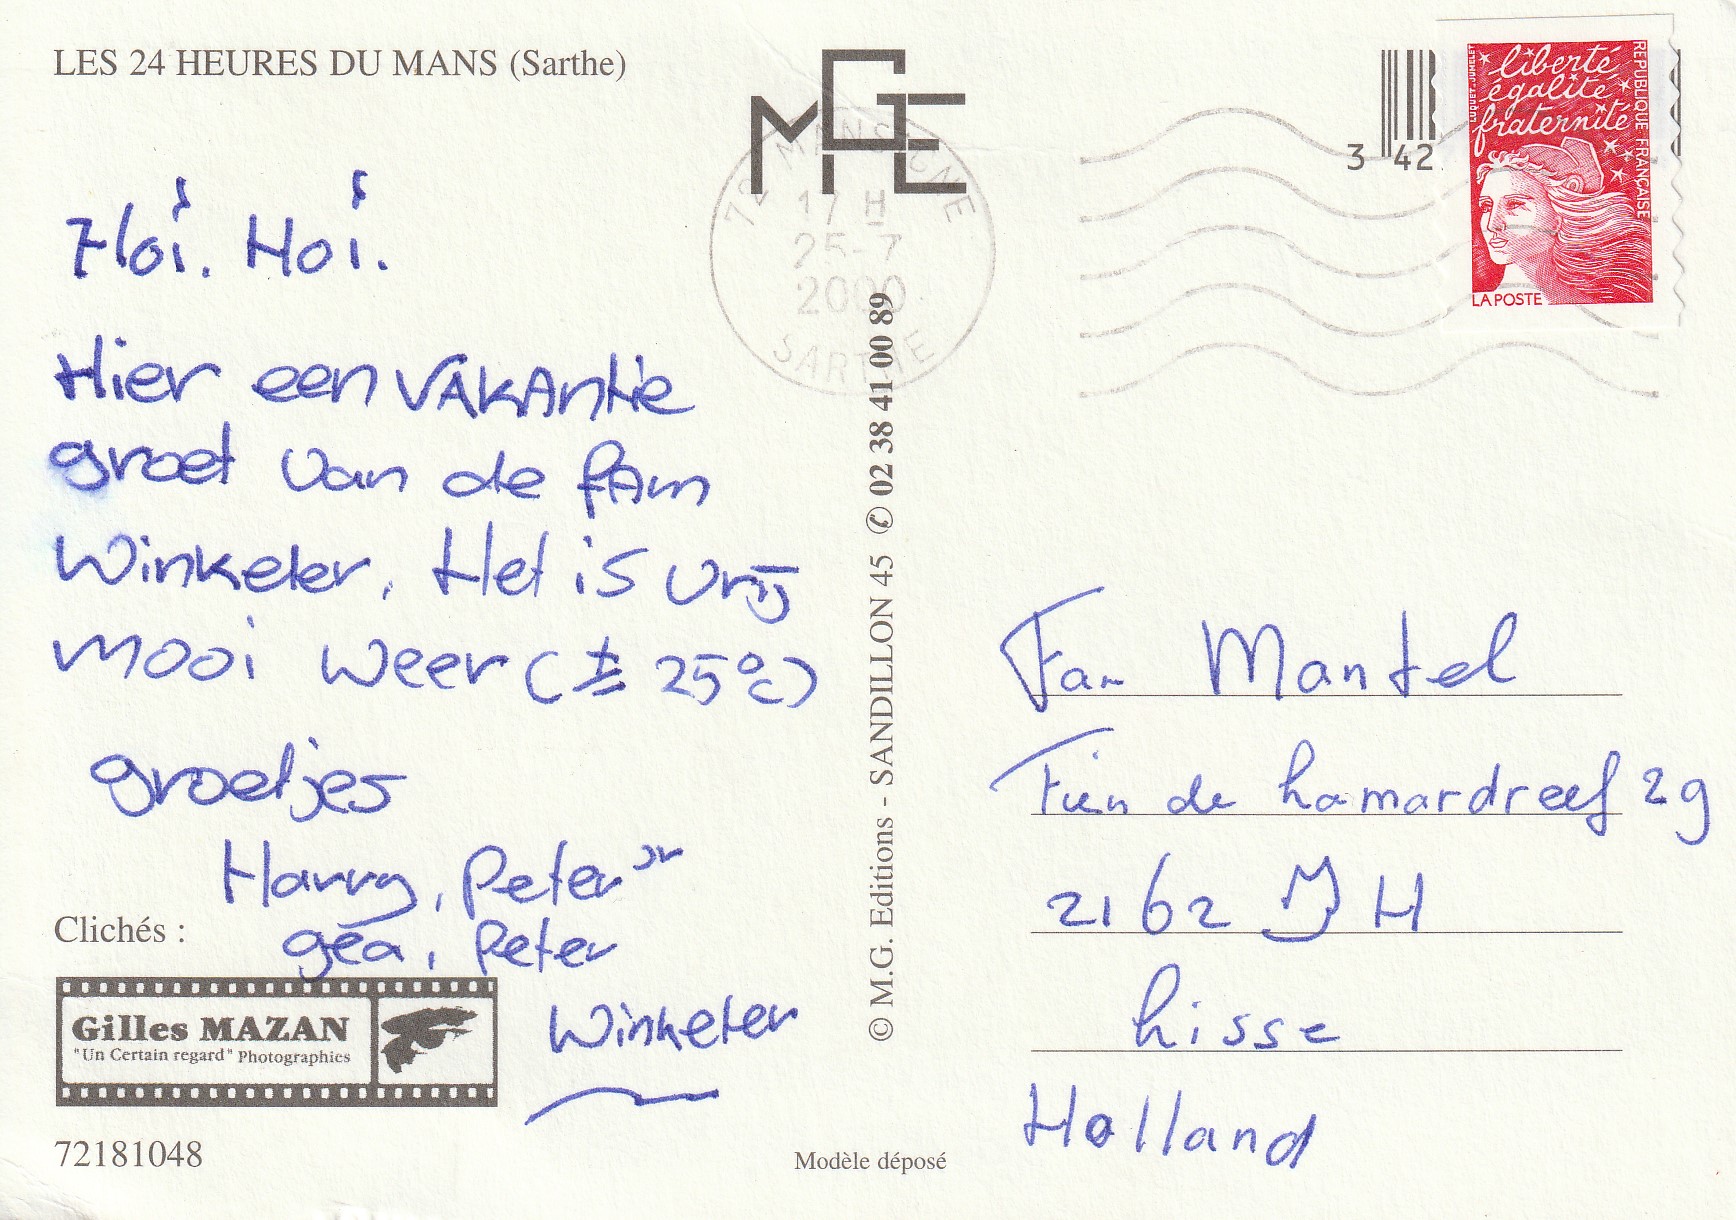 LES 24 HEURES DU MANS (Sarthe)
MGE
72 MANSIGNE
17 H
25-7
2000
SARTHE
3 42
liberté
égalité
fraternité
REPUBLIQUE FRANÇAISE
LUQUET-JUMELET
LA POSTE
Hoi. Hoi.
Hier een VAKAntie
groet van de fAm
Winkeler. Het is vrij
mooi weer (± 25°C)
groetjes
Harry, Peter Jr
gea, Peter
Winkeler
Clichés :
Gilles MAZAN
"Un Certain regard" Photographies
72181048
© M.G. Editions - SANDILLON 45 ✆ 02 38 41 00 89
Modèle déposé
Fam Mantel
Fien de Lamardreef 29
2162 JH
Lisse
Holland